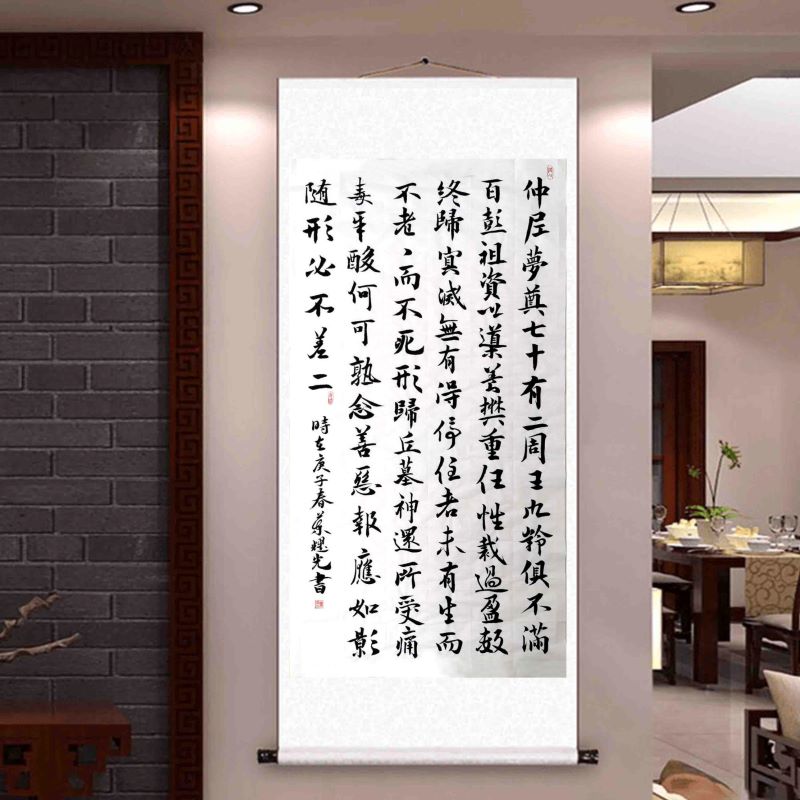 仲尼夢奠七十有二周王九齡俱不滿
百彭祖資以導養樊重任性裁過盈數
終歸冥滅無有得停住者未有生而
不老〻而不死形歸丘墓神還所受痛
毒辛酸何可熟念善惡報應如影
隨形必不差二
時在庚子春耀光書